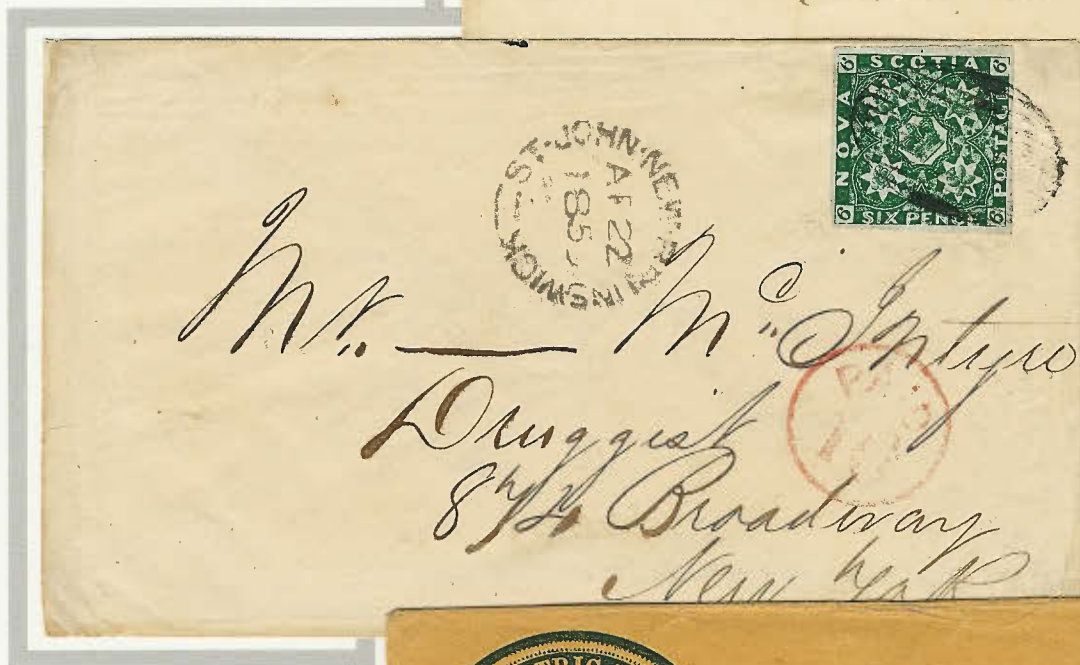 NOVA SCOTIA POSTAGE
SIX PENCE
6 6 6 6
ST. JOHN·NEW·BRUNSWICK
AP 22
185
Mr. — Mc Intyre
PAID
Druggist
874 Broadway
New York
TRIC